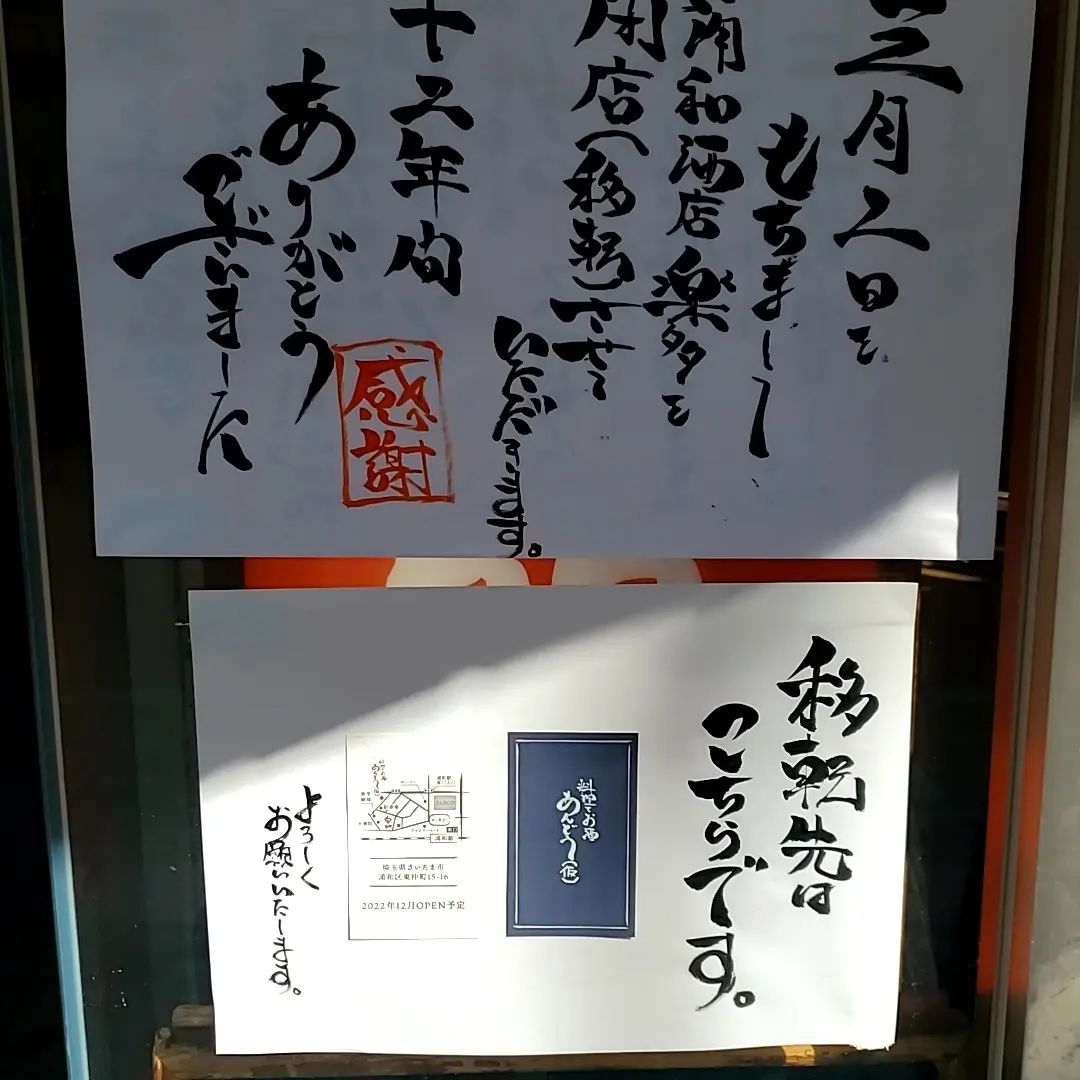 月二日を
もちまして
浦和酒店 楽多々を
閉店(移転)させて
いただきます。
十二年間
ありがとう
ございました
感謝
移転先は
こちらです。
料理とお酒
あんどう(仮)
浦和駅
埼玉県さいたま市
浦和区東仲町15-16
2022年12月OPEN予定
よろしく
お願いいたします。